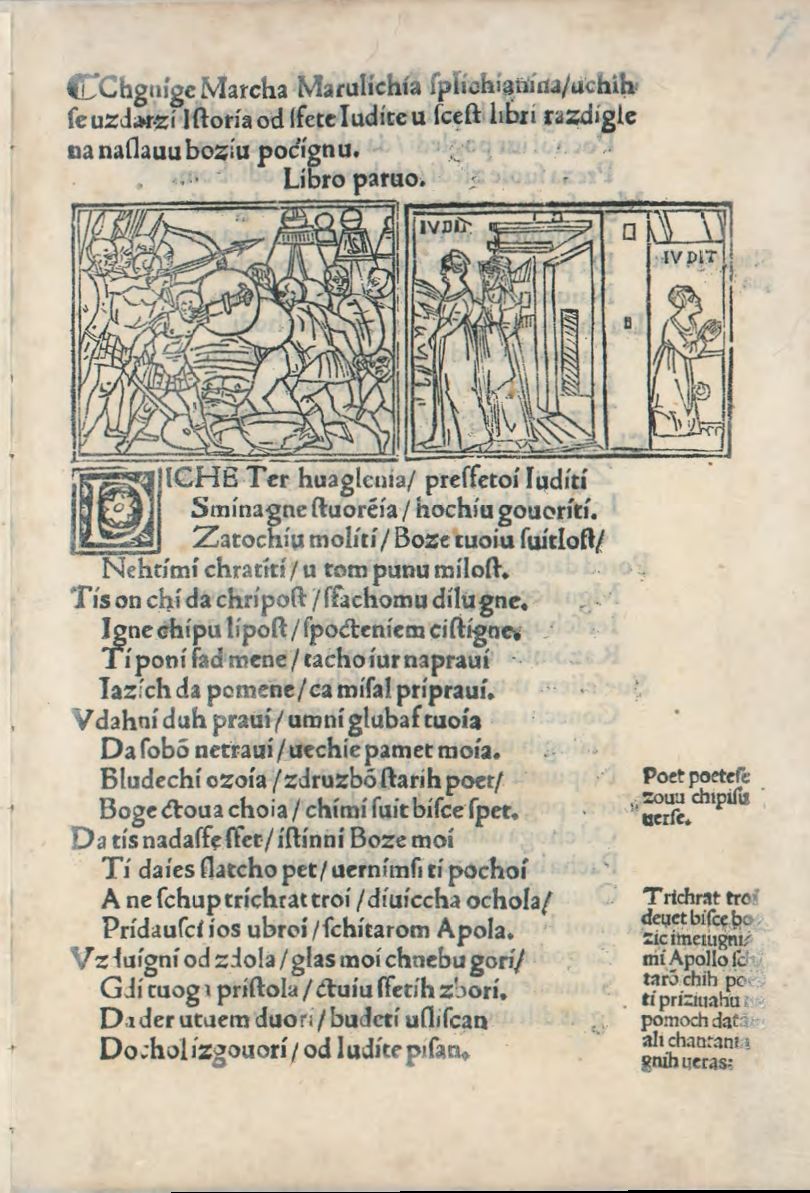 Chgnige Marcha Marulichia splichianina/uchih
se uzdarzi Istoria od sfete Iudite u scest libri razdigle
na na slauu boziu počignu.
Libro paruo.
IVDIT
IVDIT
DICHE Ter huaglenia/ presfetoi Iuditi
Smina gne stuorēia / hochiu gouoriti.
Zato chiu moliti / Boze tuoiu suitlost/
Nehtimi chratiti / u tom punu milost.
Tis on chi da chripost / sfachomu dilu gne.
Igne chipu lipost / spocteniem cistigne.
Ti poni sad mene / tacho iur napraui
Iazich da pomene / ca misal pripraui.
Vdahni duh praui / umni glubaf tuoia
Da sobō netraui / uechie pamet moia.
Bludechi ozoia / zdruzbō starih poet/
Boge ctoua choia / chimi suit bisce spet.
Da tis nadasfe sfet / istinni Boze moi
Ti daies slatcho pet / uernimsi ti pochoi
A ne schup trichrat troi / diuiccha ochola/
Pridausci ios ubroi / schitarom Apola.
Vzduigni od zdola / glas moi chnebu gori/
Gdi tuoga pristola / ctuiu sfetih zbori.
Da der utuem duori / budeti usliscan
Dochol izgouori / od Iudite pisan.
Poet poetese
zouu chi pisu
uerse.
Trichrat troi
deuet bisce bo
zic imeiugni
mi Apollo sc
tarō chih po
ti priziuahu
pomoch dat
ali chantant
gnih ueras: